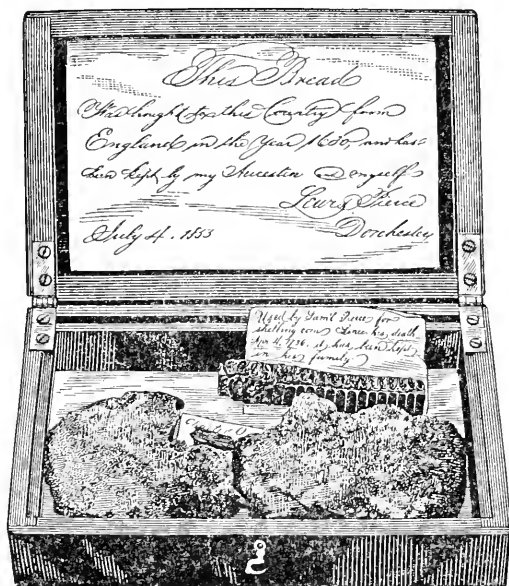 This Bread
Was brought to this Country from
England in the Year 1630, and has
been kept by my Ancestors & myself
Lewis Pierce
July 4. 1853 Dorchester
Used by Sam'l Pierce for
shelling corn Since his death
it has been kept
in his family.